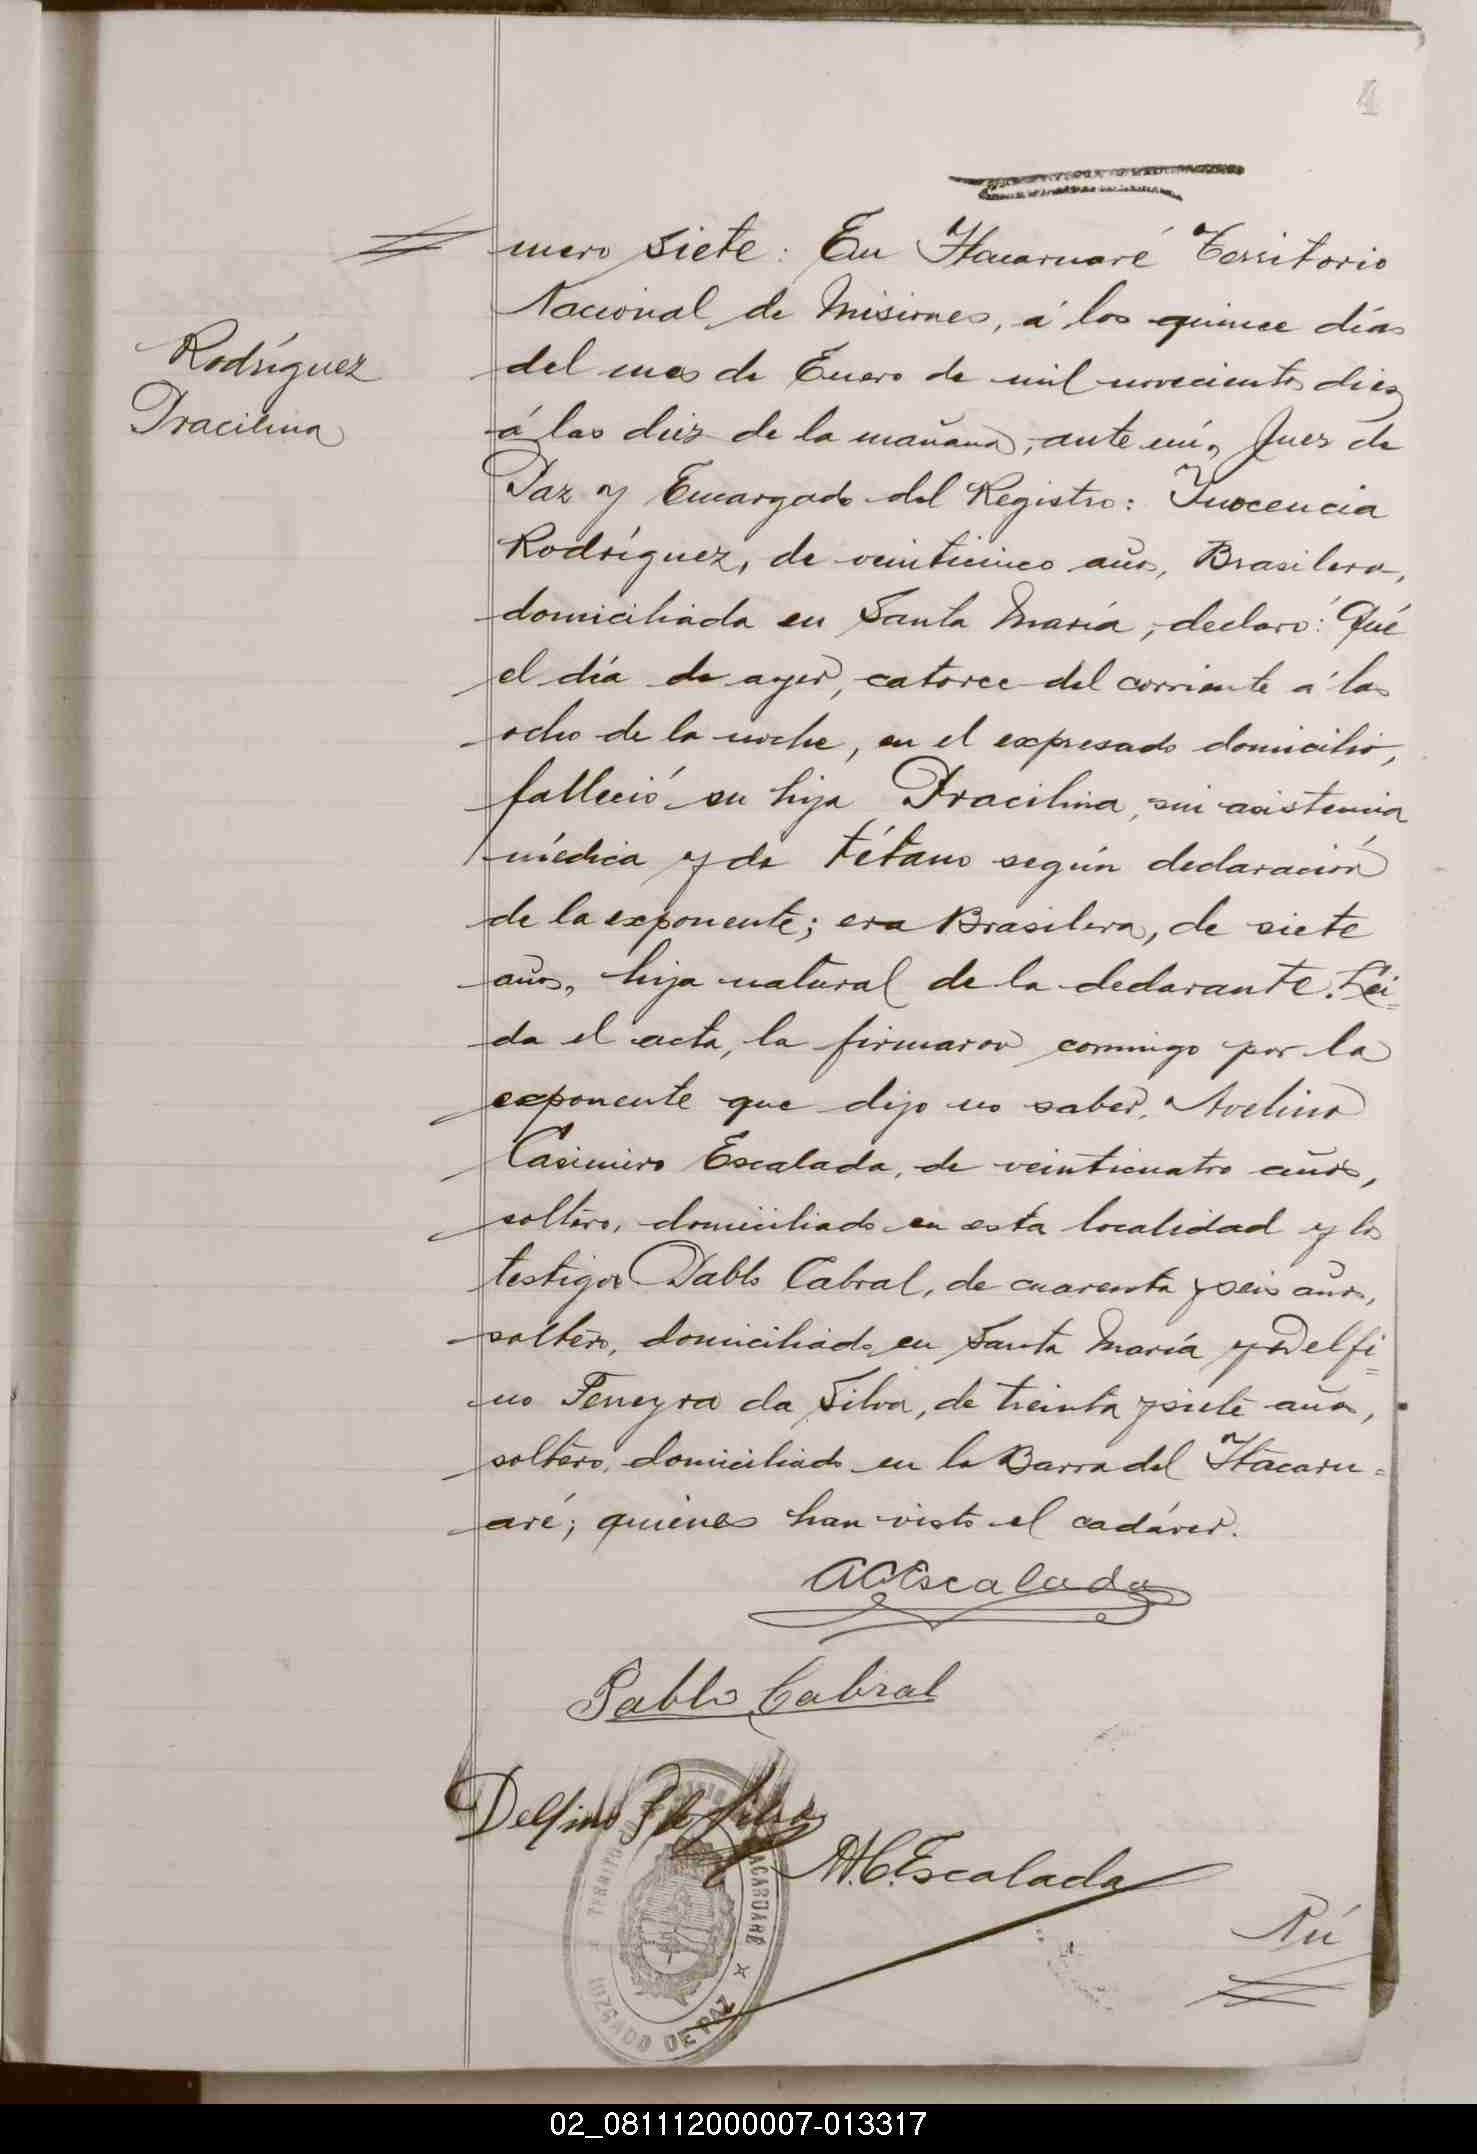 4
mero siete: En Itacaruaré Territorio
Nacional de Misiones, á los quince días
Rodríguez
Dracilina
del mes de Enero de mil novecientos diez
á las diez de la mañana, ante mí, Juez de
Paz y Encargado del Registro: Inocencia
Rodríguez, de veinticinco años, Brasilera,
domiciliada en Santa María, declaró: Qué
el día de ayer, catorce del corriente á las
ocho de la noche, en el expresado domicilio,
falleció su hija Dracilina, sin asistencia
médica y de tétano según declaración
de la exponente; era Brasilera, de siete
años, hija natural de la declarante. Leí=
da el acta, la firmaron conmigo por la
exponente que dijo no saber, Avelino
Casimiro Escalada, de veinticuatro años,
soltero, domiciliado en esta localidad y los
testigos Pablo Cabral, de cuarenta y seis años,
soltero, domiciliado en Santa María y Delfi=
no Ferreyra da Silva, de treinta y siete años,
soltero, domiciliado en la Barra del Itacaru=
aré; quienes han visto el cadáver.
A C Escalada
Pablo Cabral
Delfino F da Silva
M.C. Escalada
ITACARUARÉ
JUZGADO DE PAZ
Nú
02_081112000007-013317